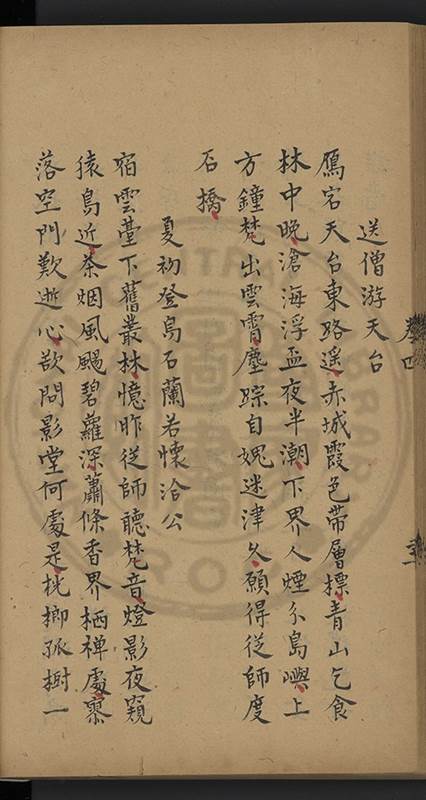 送僧游天台
鴈宕天台東路遙赤城霞色帶層摽青山乞食
林中晚滄海浮盃夜半潮下界人煙分島嶼上
方鐘梵出雲霄塵踪自媿迷津久願得從師度
石橋
夏初登烏石蘭若懷洽公
宿雲臺下舊叢林憶昨從師聽梵音燈影夜窺
猿鳥近茶烟風颺碧蘿深蕭條香界栖禅處寥
落空門歎逝心欲問影堂何處是桄榔孤樹一
卷四